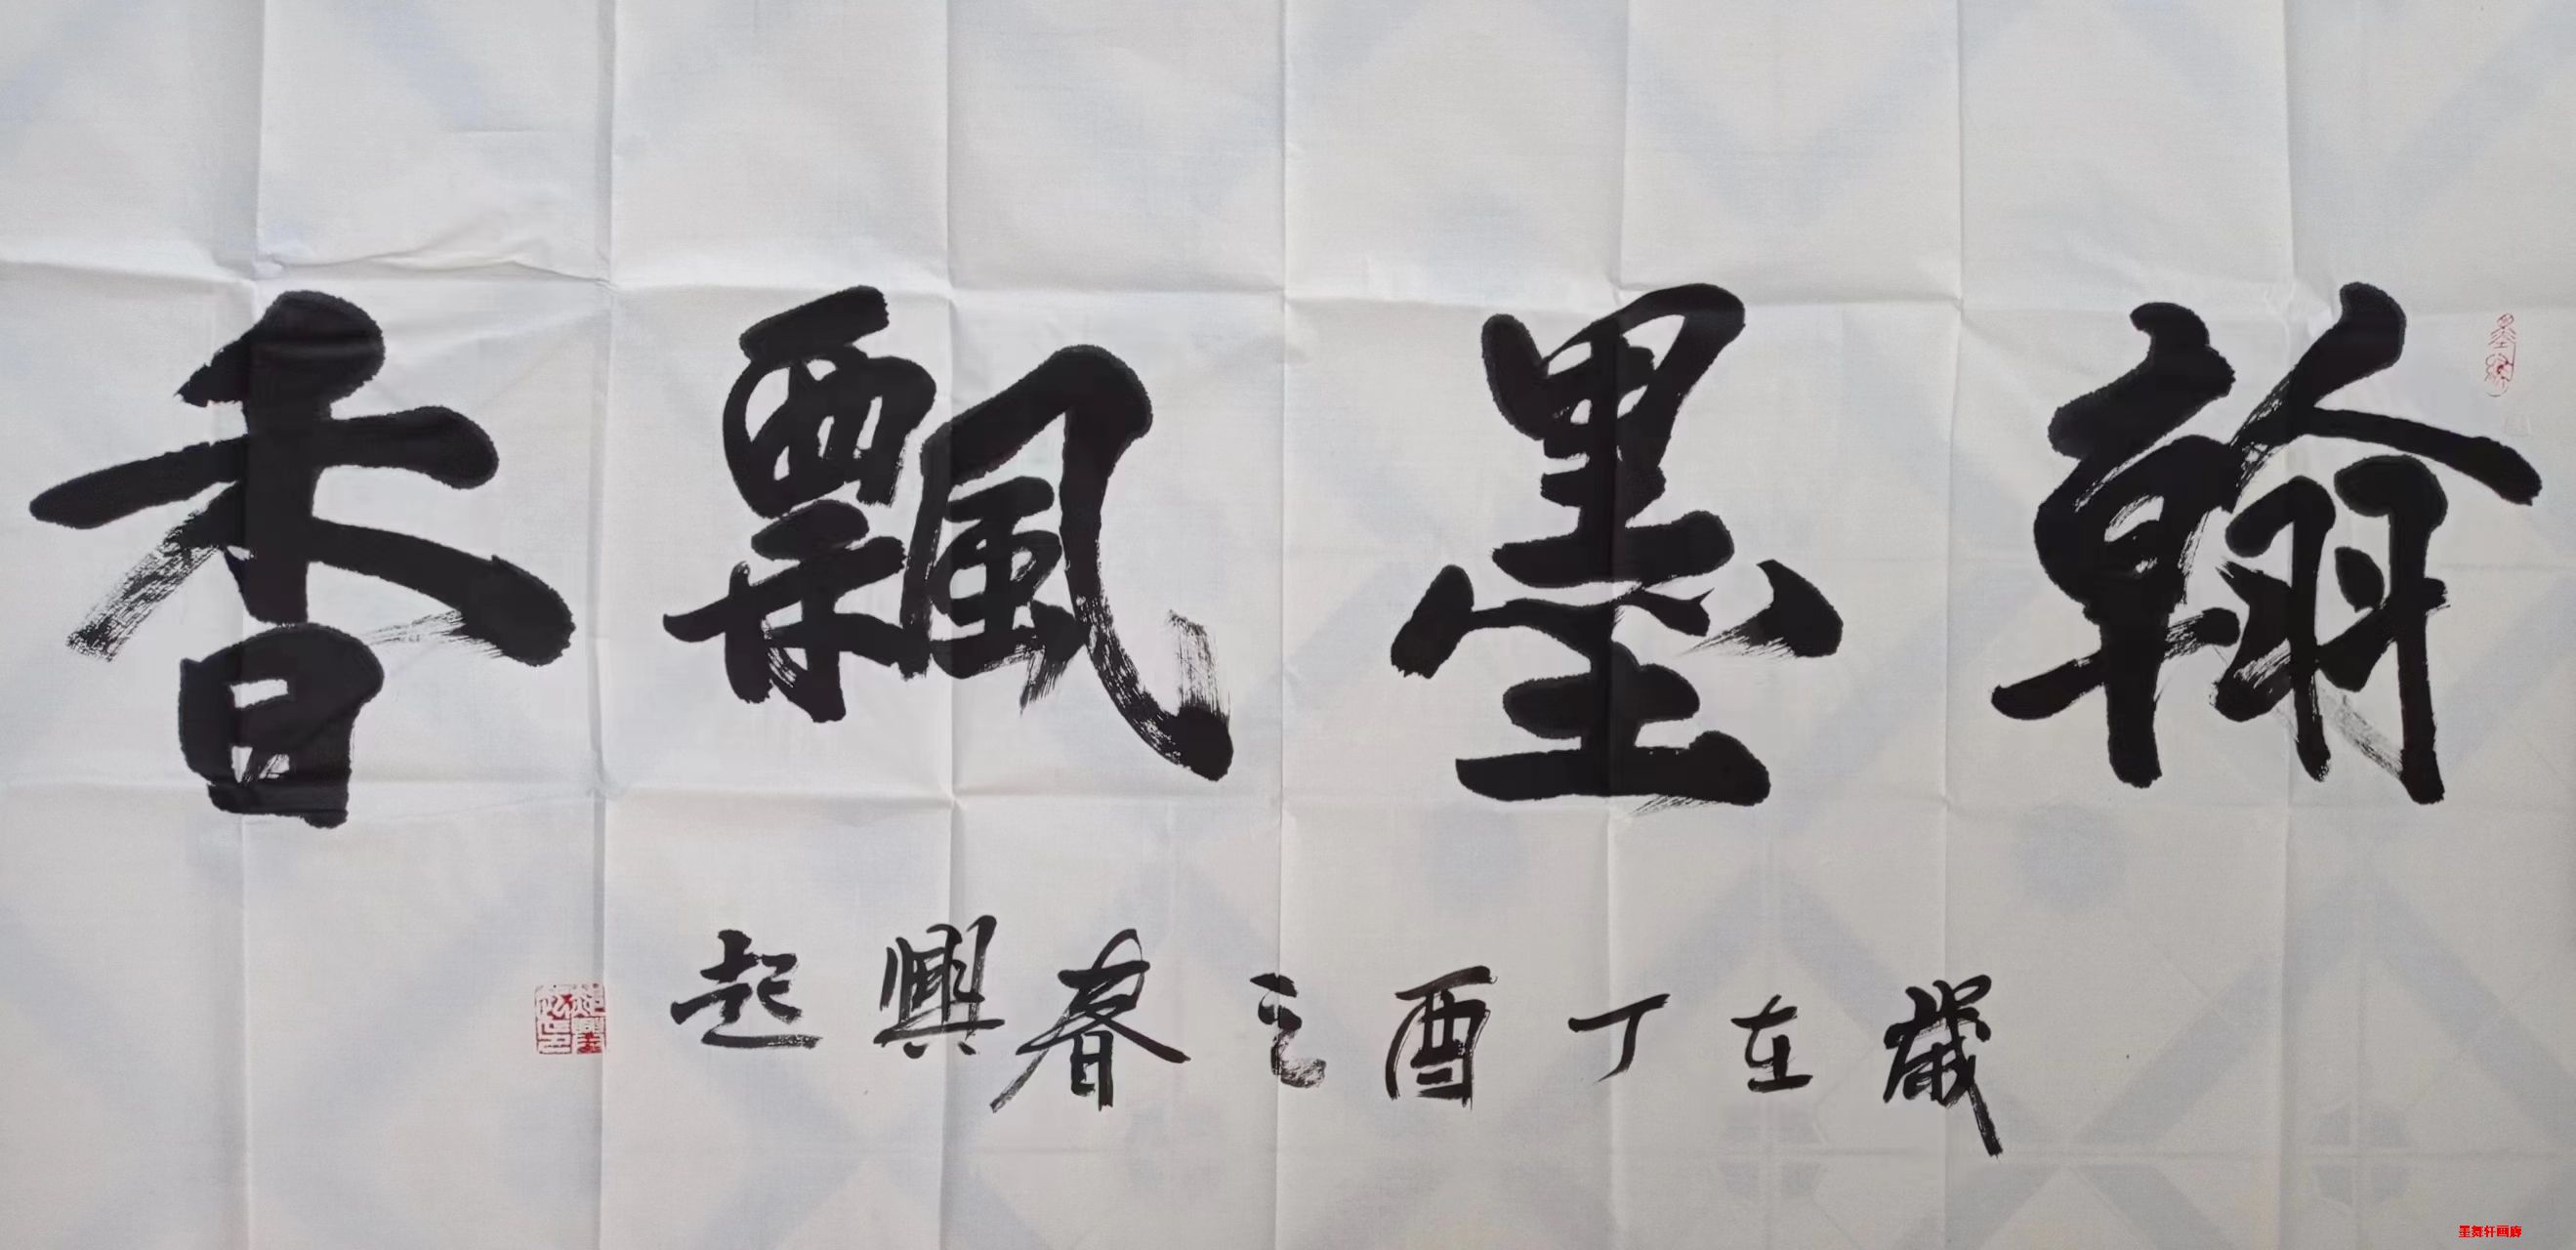 翰墨飄香
歲在丁酉之春興起
墨舞轩画廊